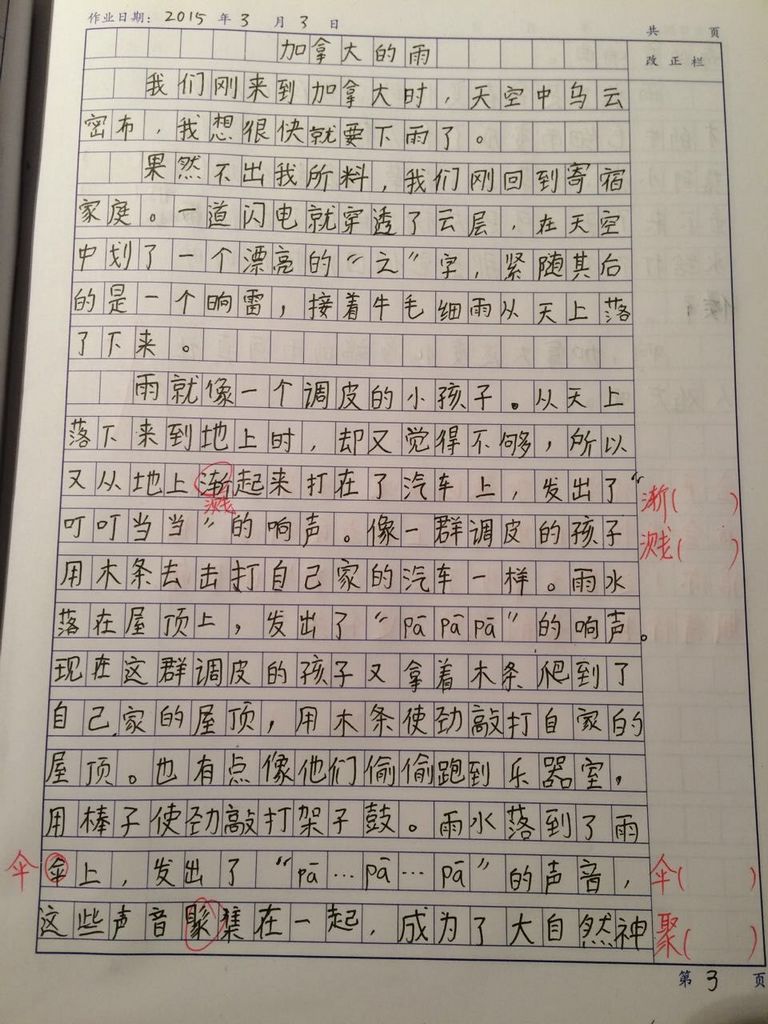 作业日期：2015 年 3 月 3 日
共 页
加拿大的雨
改正栏
我们刚来到加拿大时，天空中乌云
密布，我想很快就要下雨了。
果然不出我所料，我们刚回到寄宿
家庭。一道闪电就穿透了云层，在天空
中划了一个漂亮的“之”字，紧随其后
的是一个响雷，接着牛毛细雨从天上落
了下来。
雨就像一个调皮的小孩子。从天上
落下来到地上时，却又觉得不够，所以
又从地上渐起来打在了汽车上，发出了“
溅
渐( )
叮叮当当”的响声。像一群调皮的孩子
溅( )
用木条去击打自己家的汽车一样。雨水
落在屋顶上，发出了“pā pā pā”的响声。
现在这群调皮的孩子又拿着木条爬到了
自己家的屋顶，用木条使劲敲打自家的
屋顶。也有点像他们偷偷跑到乐器室，
用棒子使劲敲打架子鼓。雨水落到了雨
伞 伞上，发出了“pā…pā…pā”的声音，
伞( )
这些声音聚集在一起，成为了大自然神
聚( )
第 3 页